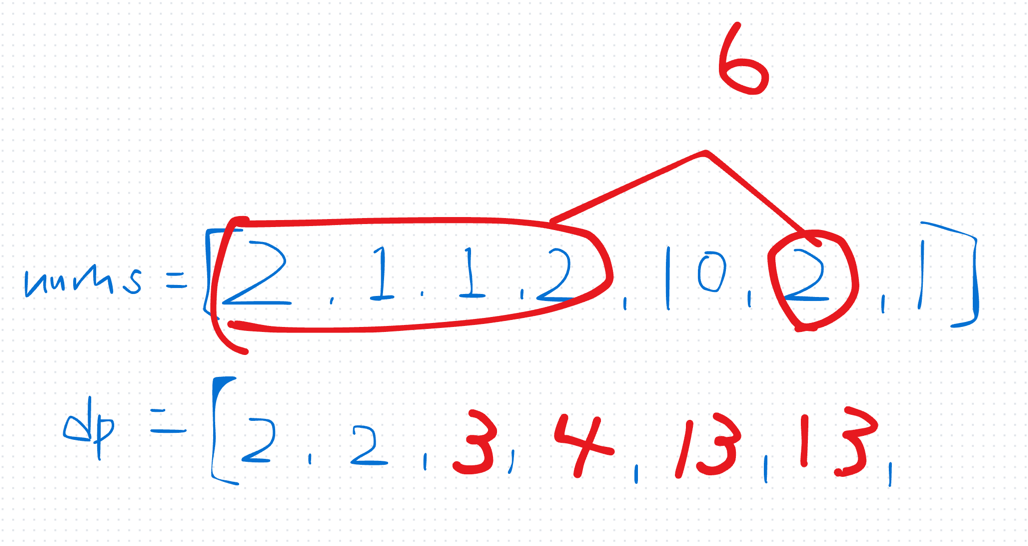 6
nums = [2, 1, 1, 2, 10, 2, 1]
dp = [2, 2, 3, 4, 13, 13,